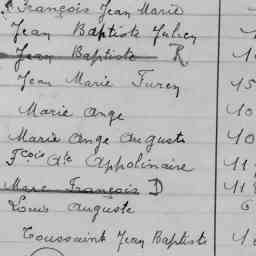 François Jean Marie
Jean Baptiste Julien
Jean Baptiste R
Jean Marie Turen
Marie Ange
Marie Ange Auguste 40
Fçois Ate Appolinaire 11
Marc François D 11
Louis Auguste 6
Toussaint Jean Baptiste